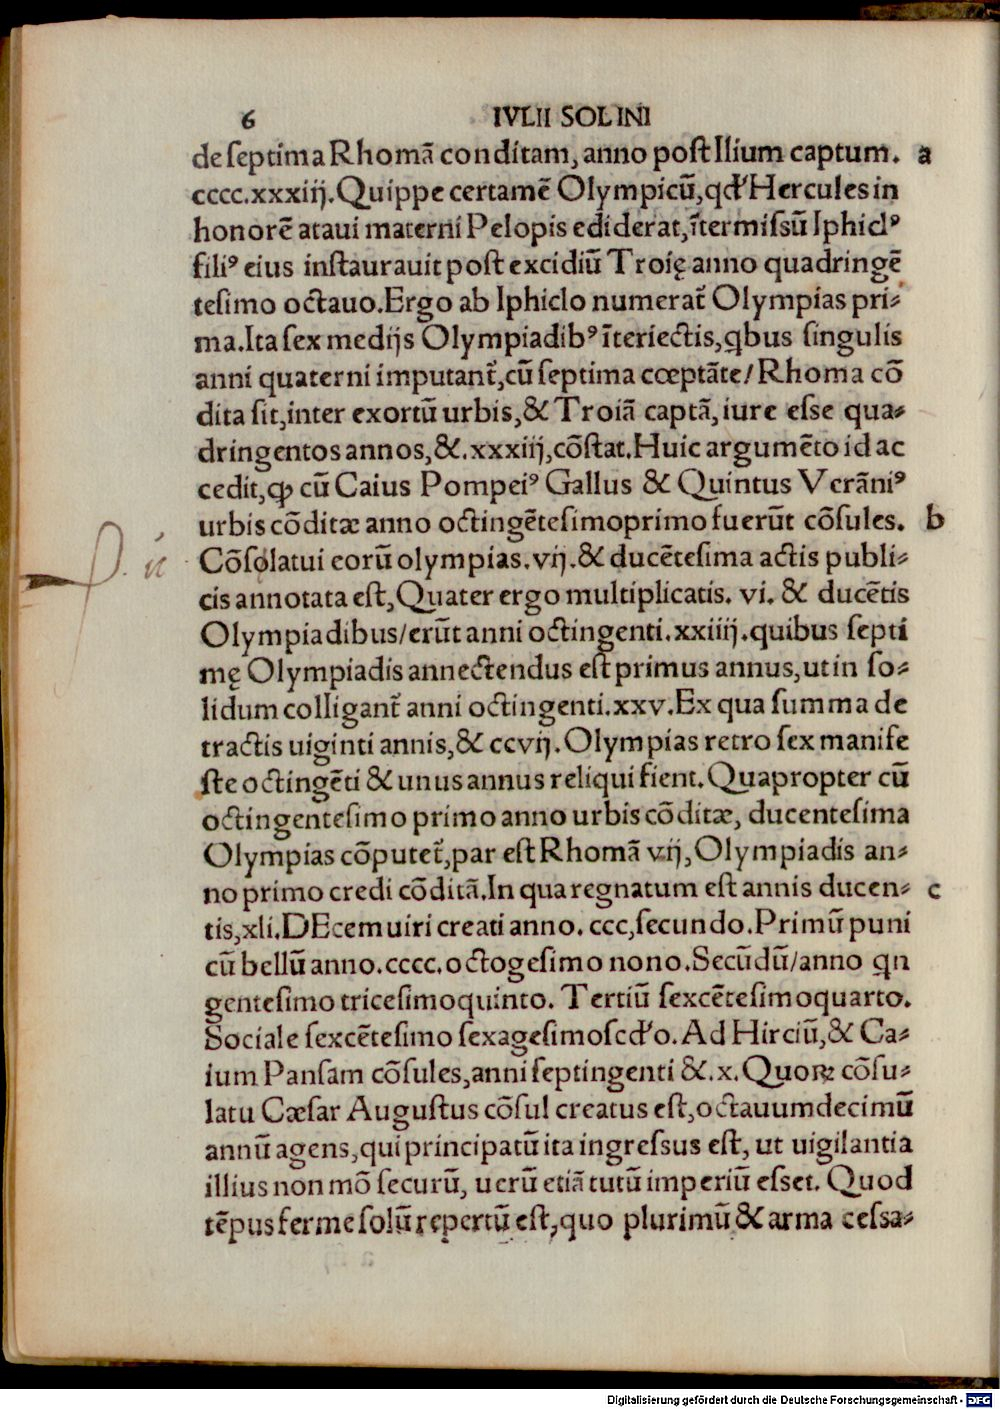 6 IVLII SOLINI
de ſeptima Rhomā conditam, anno poſt Ilium captum. a
cccc.xxxiij. Quippe certamē Olympicū, qđ Hercules in
honorē ataui materni Pelopis ediderat, ĩtermiſsū Iphiclꝰ
filiꝰ eius inſtaurauit poſt excidiū Troię anno quadringē
teſimo octauo. Ergo ab Iphiclo numerat̃ Olympias pri-
ma. Ita ſex medijs Olympiadibꝰ ĩteriectis, ꝗbus ſingulis
anni quaterni imputant̃, cū ſeptima cœptāte/ Rhoma cō
dita ſit, inter exortū urbis, & Troiā captā, iure eſse qua-
dringentos annos, &. xxxiij, cōſtat. Huic argumēto id ac
cedit, ꝙ cū Caius Pompeiꝰ Gallus & Quintus Verāniꝰ
urbis cōditæ anno octingēteſimoprimo fuerūt cōſules. b
Cōſolatui eorū olympias. vij. & ducēteſima actis publi-
cis annotata eſt, Quater ergo multiplicatis. vi. & ducētis
Olympiadibus/ erūt anni octingenti. xxiiij. quibus ſepti
mę Olympiadis annectendus eſt primus annus, ut in ſo-
lidum colligant̃ anni octingenti. xxv. Ex qua ſumma de
tractis uiginti annis, & ccvij. Olympias retro ſex manife
ſte octingēti & unus annus reliqui fient. Quapropter cū
octingenteſimo primo anno urbis cōditæ, ducenteſima
Olympias cōputet̃, par eſt Rhomā vij, Olympiadis an-
no primo credi cōditā. In qua regnatum eſt annis ducen- c
tis, xli. DEcemuiri creati anno. ccc, ſecundo. Primū puni
cū bellū anno. cccc. octogeſimo nono. Secūdū/ anno ꝗn
genteſimo triceſimoquinto. Tertiū ſexcēteſimoquarto.
Sociale ſexcēteſimo ſexageſimoſcđo. Ad Hirciū, & Ca-
ium Panſam cōſules, anni ſeptingenti &. x. Quoꝝ cōſu-
latu Cæſar Auguſtus cōſul creatus eſt, octauumdecimū
annū agens, qui principatū ita ingreſsus eſt, ut uigilantia
illius non mō ſecurū, uerū etiā tutū imperiū eſset. Quod
tēpus ferme ſolū repertū eſt, quo plurimū & arma ceſsa-
Digitalisierung gefördert durch die Deutsche Forschungsgemeinschaft - DFG